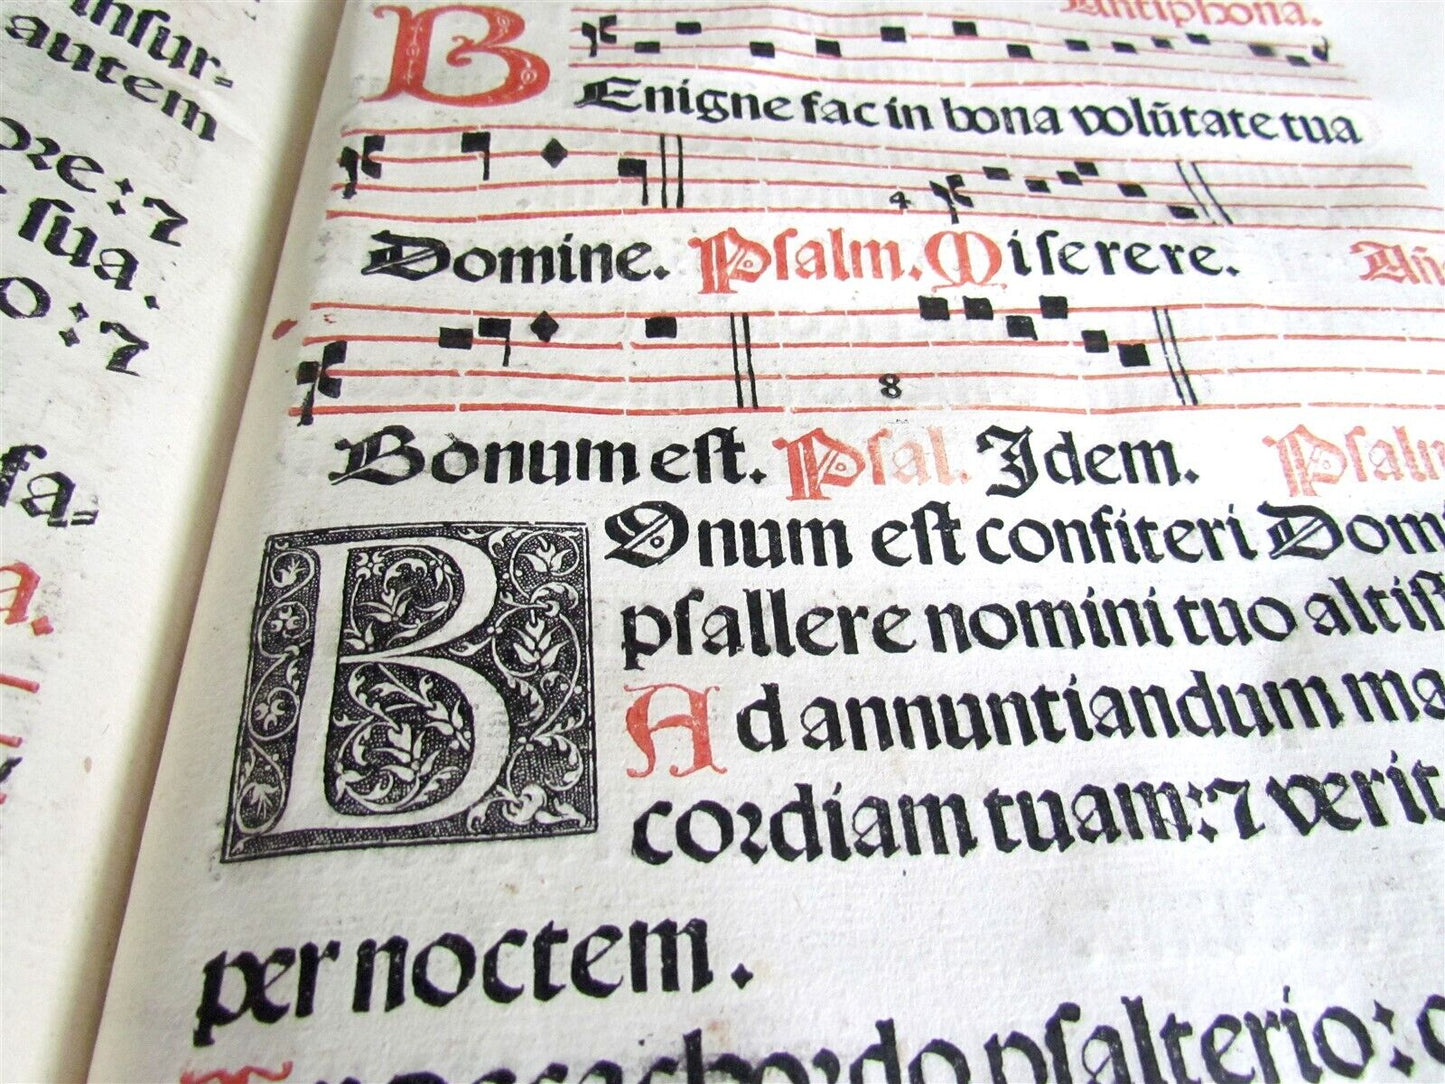 insur=
autem
ore:⁊
sua.
o:⁊
fa=
a.
Antiphona.
BEnigne fac in bona volũtate tua
4
Domine. Psalm. Miserere. Añ
8
Bonum est. Psal. Idem. Psalm
BOnum est confiteri Domi
psallere nomini tuo altiss
Ad annuntiandum ma
cordiam tuam:⁊ verit
per noctem.
psalterio: